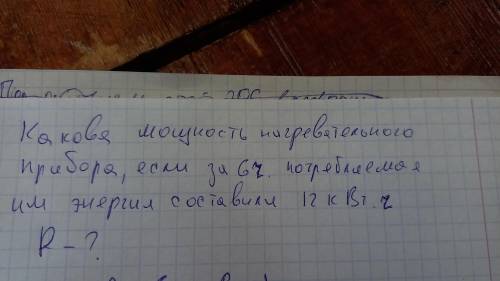 Какова мощность нагревательного
прибора, если за 6ч. потребляемая
им энергия составила 12 кВт.ч
R - ?